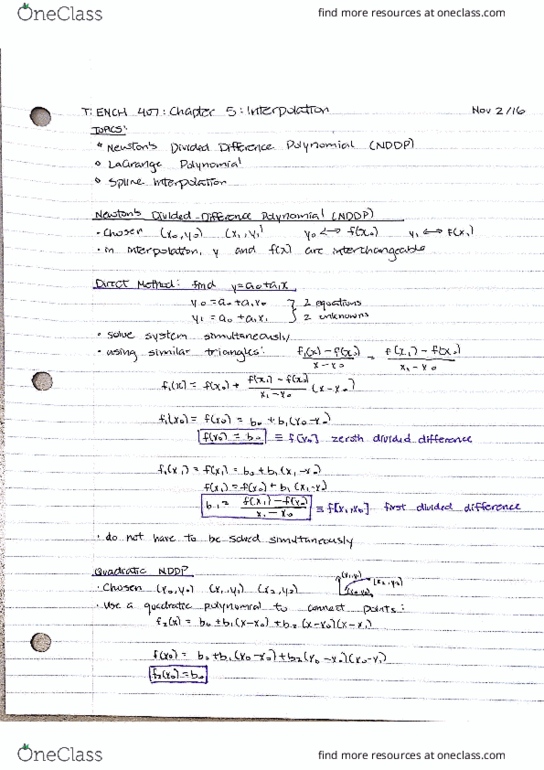 OneClass find more resources at oneclass.com
T: ENCH 407: Chapter 5: Interpolation Nov 2/16
TOPICS:
• Newton's Divided Difference Polynomial (NDDP)
• LaGrange Polynomial
• Spline Interpolation
Newton's Divided-Difference Polynomial (NDDP)
• Chosen (x₀,y₀) (x₁,y₁) y₀ ⟷ f(x₀) y₁ ⟷ f(x₁)
• in interpolation, y and f(x) are interchangeable
Direct Method: find y=a₀+a₁x
y₀ = a₀+a₁x₀ } 2 equations
y₁ = a₀+a₁x₁ } 2 unknowns
• solve system simultaneously
• using similar triangles: (f₁(x) - f(x₀))/(x-x₀) = (f(x₁) - f(x₀))/(x₁-x₀)
f₁(x) = f(x₀) + (f(x₁) - f(x₀))/(x₁-x₀) (x-x₀)
f₁(x₀) = f(x₀) = b₀ + b₁(x₀-x₀)
f(x₀) = b₀ ≡ f[x₀] zeroth divided difference
f₁(x₁) = f(x₁) = b₀ + b₁(x₁-x₀)
f(x₁) = f(x₀) + b₁(x₁-x₀)
b₁ = (f(x₁) - f(x₀))/(x₁-x₀) ≡ f[x₁,x₀] first divided difference
• do not have to be solved simultaneously
Quadratic NDDP
• Chosen (x₀,y₀) (x₁,y₁) (x₂,y₂) (x₁,y₁) (x₂,y₂) (x₀,y₀)
• Use a quadratic polynomial to connect points:
f₂(x) = b₀+b₁(x-x₀)+b₂(x-x₀)(x-x₁)
f(x₀) = b₀+b₁(x₀-x₀)+b₂(x₀-x₀)(x₀-x₁)
f₂(x₀)=b₀
OneClass find more resources at oneclass.com